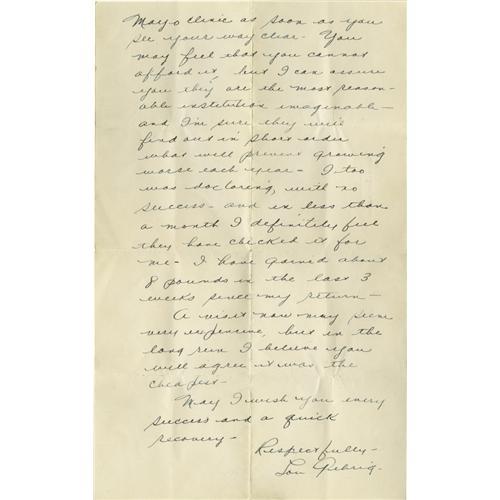 Mayo clinic as soon as you
see your way clear. You
may feel that you cannot
afford it, but I can assure
you they are the most reason-
able institution imaginable -
and I'm sure they will
find out in short order
what will prevent growing
worse each year - I too
was doctoring, with no
success - and in less than
a month I definitely feel
they have checked it for
me - I have gained about
8 pounds in the last 3
weeks since my return -
A visit now may seem
very expensive, but in the
long run I believe you
will agree it was the
cheapest -
May I wish you every
success and a quick
recovery -
Respectfully -
Lou Gehrig -